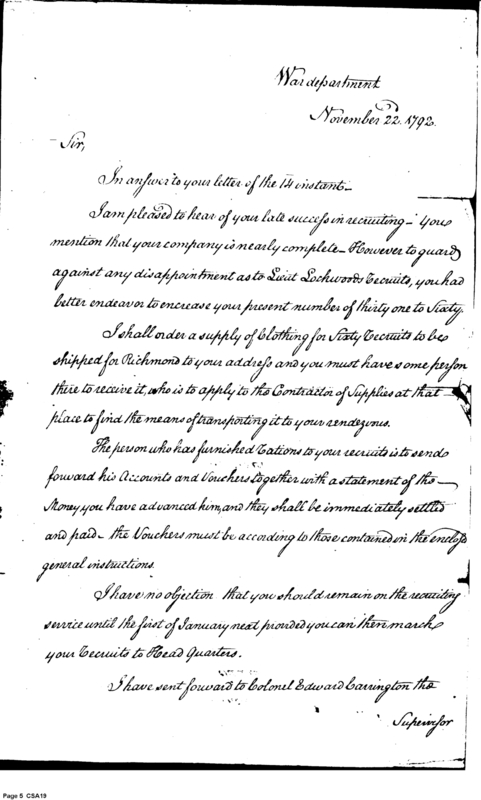 War department
November 22.d 1792.
Sir,
In answer to your letter of the 14 instant_
I am pleased to hear of your late success in recruiting_ You
mention that your company is nearly complete_ However to guard
against any disappointment as to Lieut Lockwoods recruits, you had
better endeavor to encrease your present number of thirty one to Sixty.
I shall order a supply of Clothing for Sixty recruits to be
shipped for Richmond to your address and you must have some person
there to receive it, who is to apply to the Contractor of Supplies at that
place to find the means of transporting it to your rendezvous.
The person who has furnished rations to your recruits is to send
forward his Accounts and Vouchers together with a statement of the
Money you have advanced him, and they shall be immediately settled
and paid_ the Vouchers must be according to those contained in the enclosd
general instructions.
I have no objection that you should remain on the recruiting
service until the first of January next provided you can then march
your recruits to Head Quarters.
I have sent forward to Colonel Edward Carrington the
Supervisor
Page 5 CSA19